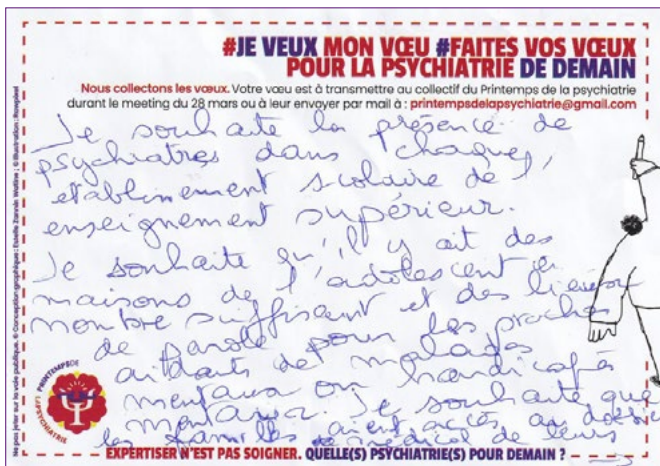 #JE VEUX MON VŒU #FAITES VOS VŒUX
POUR LA PSYCHIATRIE DE DEMAIN
Nous collectons les vœux. Votre vœu est à transmettre au collectif du Printemps de la psychiatrie
durant le meeting du 28 mars ou à leur envoyer par mail à : printempsdelapsychiatrie@gmail.com
Je souhaite la présence de
psychiatres dans chaque
etablissement scolaire de l'
enseignement supérieur.
Je souhaite qu'il y ait des
maisons de l'adolescent
nombre suffisant et des lieux
de parole pour les proches
aidants de malades
mentaux ou handicapés
mentaux. Je souhaite que
les familles aient accès au dossier
médical de leurs
EXPERTISER N'EST PAS SOIGNER. QUELLE(S) PSYCHIATRIE(S) POUR DEMAIN ?
PRINTEMPS DE
LA PSYCHIATRIE
Ne pas jeter sur la voie publique. © Conception graphique : Estelle Zannin Wolline ; © Illustration :